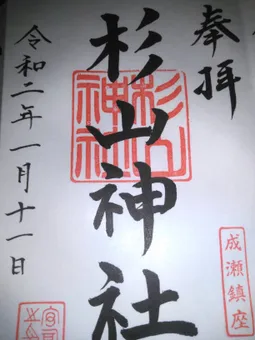 奉拝
杉山神社
杉山神社
成瀬鎮座
令和二年一月十一日